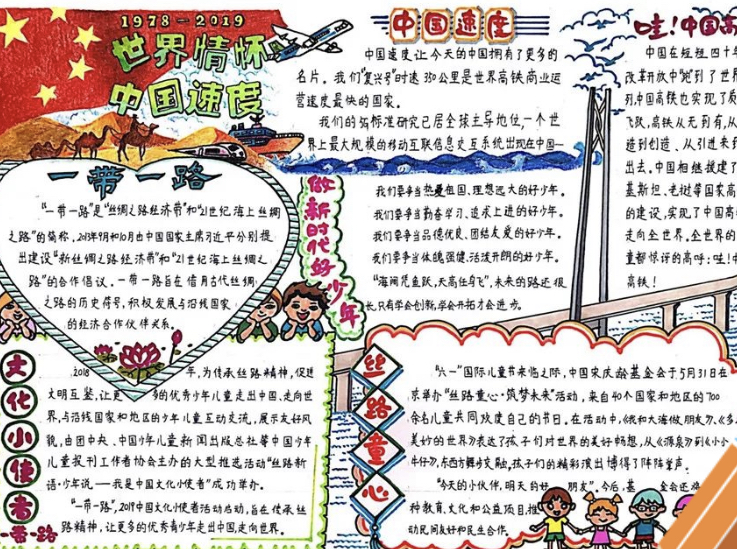 1978-2019
世界情怀
中国速度
中国速度
中国速度让今天的中国拥有了更多的
名片。我们"复兴号"时速350公里是世界高铁商业运
营速度最快的国家。
我们的5G标准研究已居全球主导地位,一个世
界上最大规模的移动互联信息交互系统出现在中国
哇!中国高
中国在短短四十年
改革开放中跑到了世界
列,中国高铁也实现了
飞跃,高铁从无到有,从
造到创造、从引进来到
出去。中国相继援建了
基斯坦、老挝等国家高
的建设,实现了中国高
走向全世界。全世界的
童都惊讶的高呼:哇!中
高铁!
一带一路
"一带一路"是"丝绸之路经济带"和"21世纪海上丝绸
之路"的简称,2013年9月和10月由中国国家主席习近平分别提
出建设"新丝绸之路经济带"和"21世纪海上丝绸之
路"的合作倡议。一带一路旨在借用古代丝绸
之路的历史符号,积极发展与沿线国家
的经济合作伙伴关系。
做新时代好少年
我们要争当热爱祖国、理想远大的好少年。
我们要争当勤奋学习、追求上进的好少年。
我们要争当品德优良、团结友爱的好少年。
我们要争当体魄强健、活泼开朗的好少年。
"海阔凭鱼跃,天高任鸟飞",未来的路还很
长,只有学会创新,学会开拓才会进步。
文化小使者
2018
年,为传承丝路精神,促进
文明互鉴,让更
多的优秀少年儿童走出中国、走向世
界,与沿线国家和地区的少年儿童互动交流,展示友好风
貌,由团中央、中国少年儿童新闻出版总社等中国少年
儿童报刊工作者协会主办的大型推选活动"丝路新
语·少年说——我是中国文化小使者"成功举办。
"一带一路",2019中国文化小使者活动启动,旨在传承丝
路精神,让更多的优秀青少年走出中国,走向世界。
一带一路
丝路童心
"六一"国际儿童节来临之际,中国宋庆龄基金会于5月31日在
京举办"丝路童心·筑梦未来"活动,来自40个国家和地区的700
余名儿童共同欢度自己的节日。在活动中,《我和大海做朋友》、《多
美妙的世界》表达了孩子们对世界的美好畅想,从《源泉》到《小小
牛仔》,东西方舞步交融,孩子们的精彩演出博得了阵阵掌声。
"今天的小伙伴,明天的好
朋友"。今后,基
金会还准
种教育、文化和公益项目,推
动民间友好和民生合作。